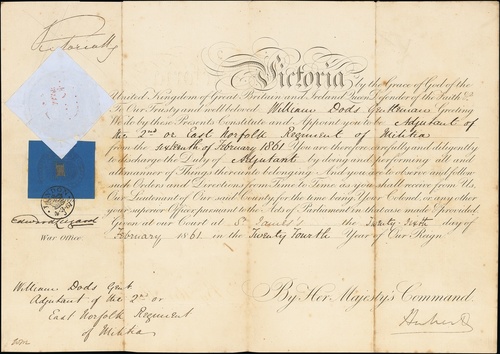 Victoria R
Victoria by the Grace of God of the
United Kingdom of Great Britain and Ireland Queen Defender of the Faith &c
To Our Trusty and well beloved William Dods Gentleman Greeting
We do by these Presents Constitute and Appoint you to be Adjutant of
the 2nd or East Norfolk Regiment of Militia
from the sixteenth of February 1861 You are therefore carefully and diligently
to discharge the Duty of Adjutant by doing and performing all and
all manner of Things thereunto belonging And you are to observe and follow
such Orders and Directions from Time to Time as you shall receive from Us,
Our Lieutenant of Our said County for the time being Your Colonel, or any other
your superior Officer pursuant to the Acts of Parliament in that case made & provided
Given at our Court at St James's the Twenty Sixth day of
February 1861 in the Twenty Fourth Year of Our Reign
By Her Majesty's Command.
Herbert
Edward Lugard
War Office
William Dods Gent
Adjutant of the 2nd or
East Norfolk Regiment
of Militia